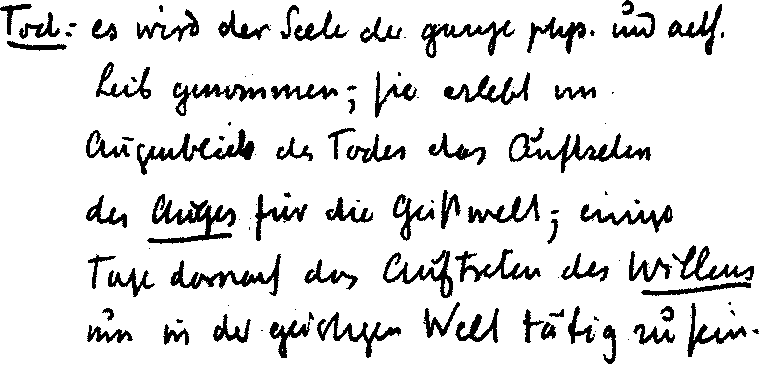 Tod: es wird der Seele der ganze phys. und aeth.
Leib genommen; sie erlebt im
Augenblick des Todes das Auftreten
des Auges für die Geistwelt; einige
Tage darnauf das Auftreten des Willens
nun in der geistigen Welt tätig zu sein.